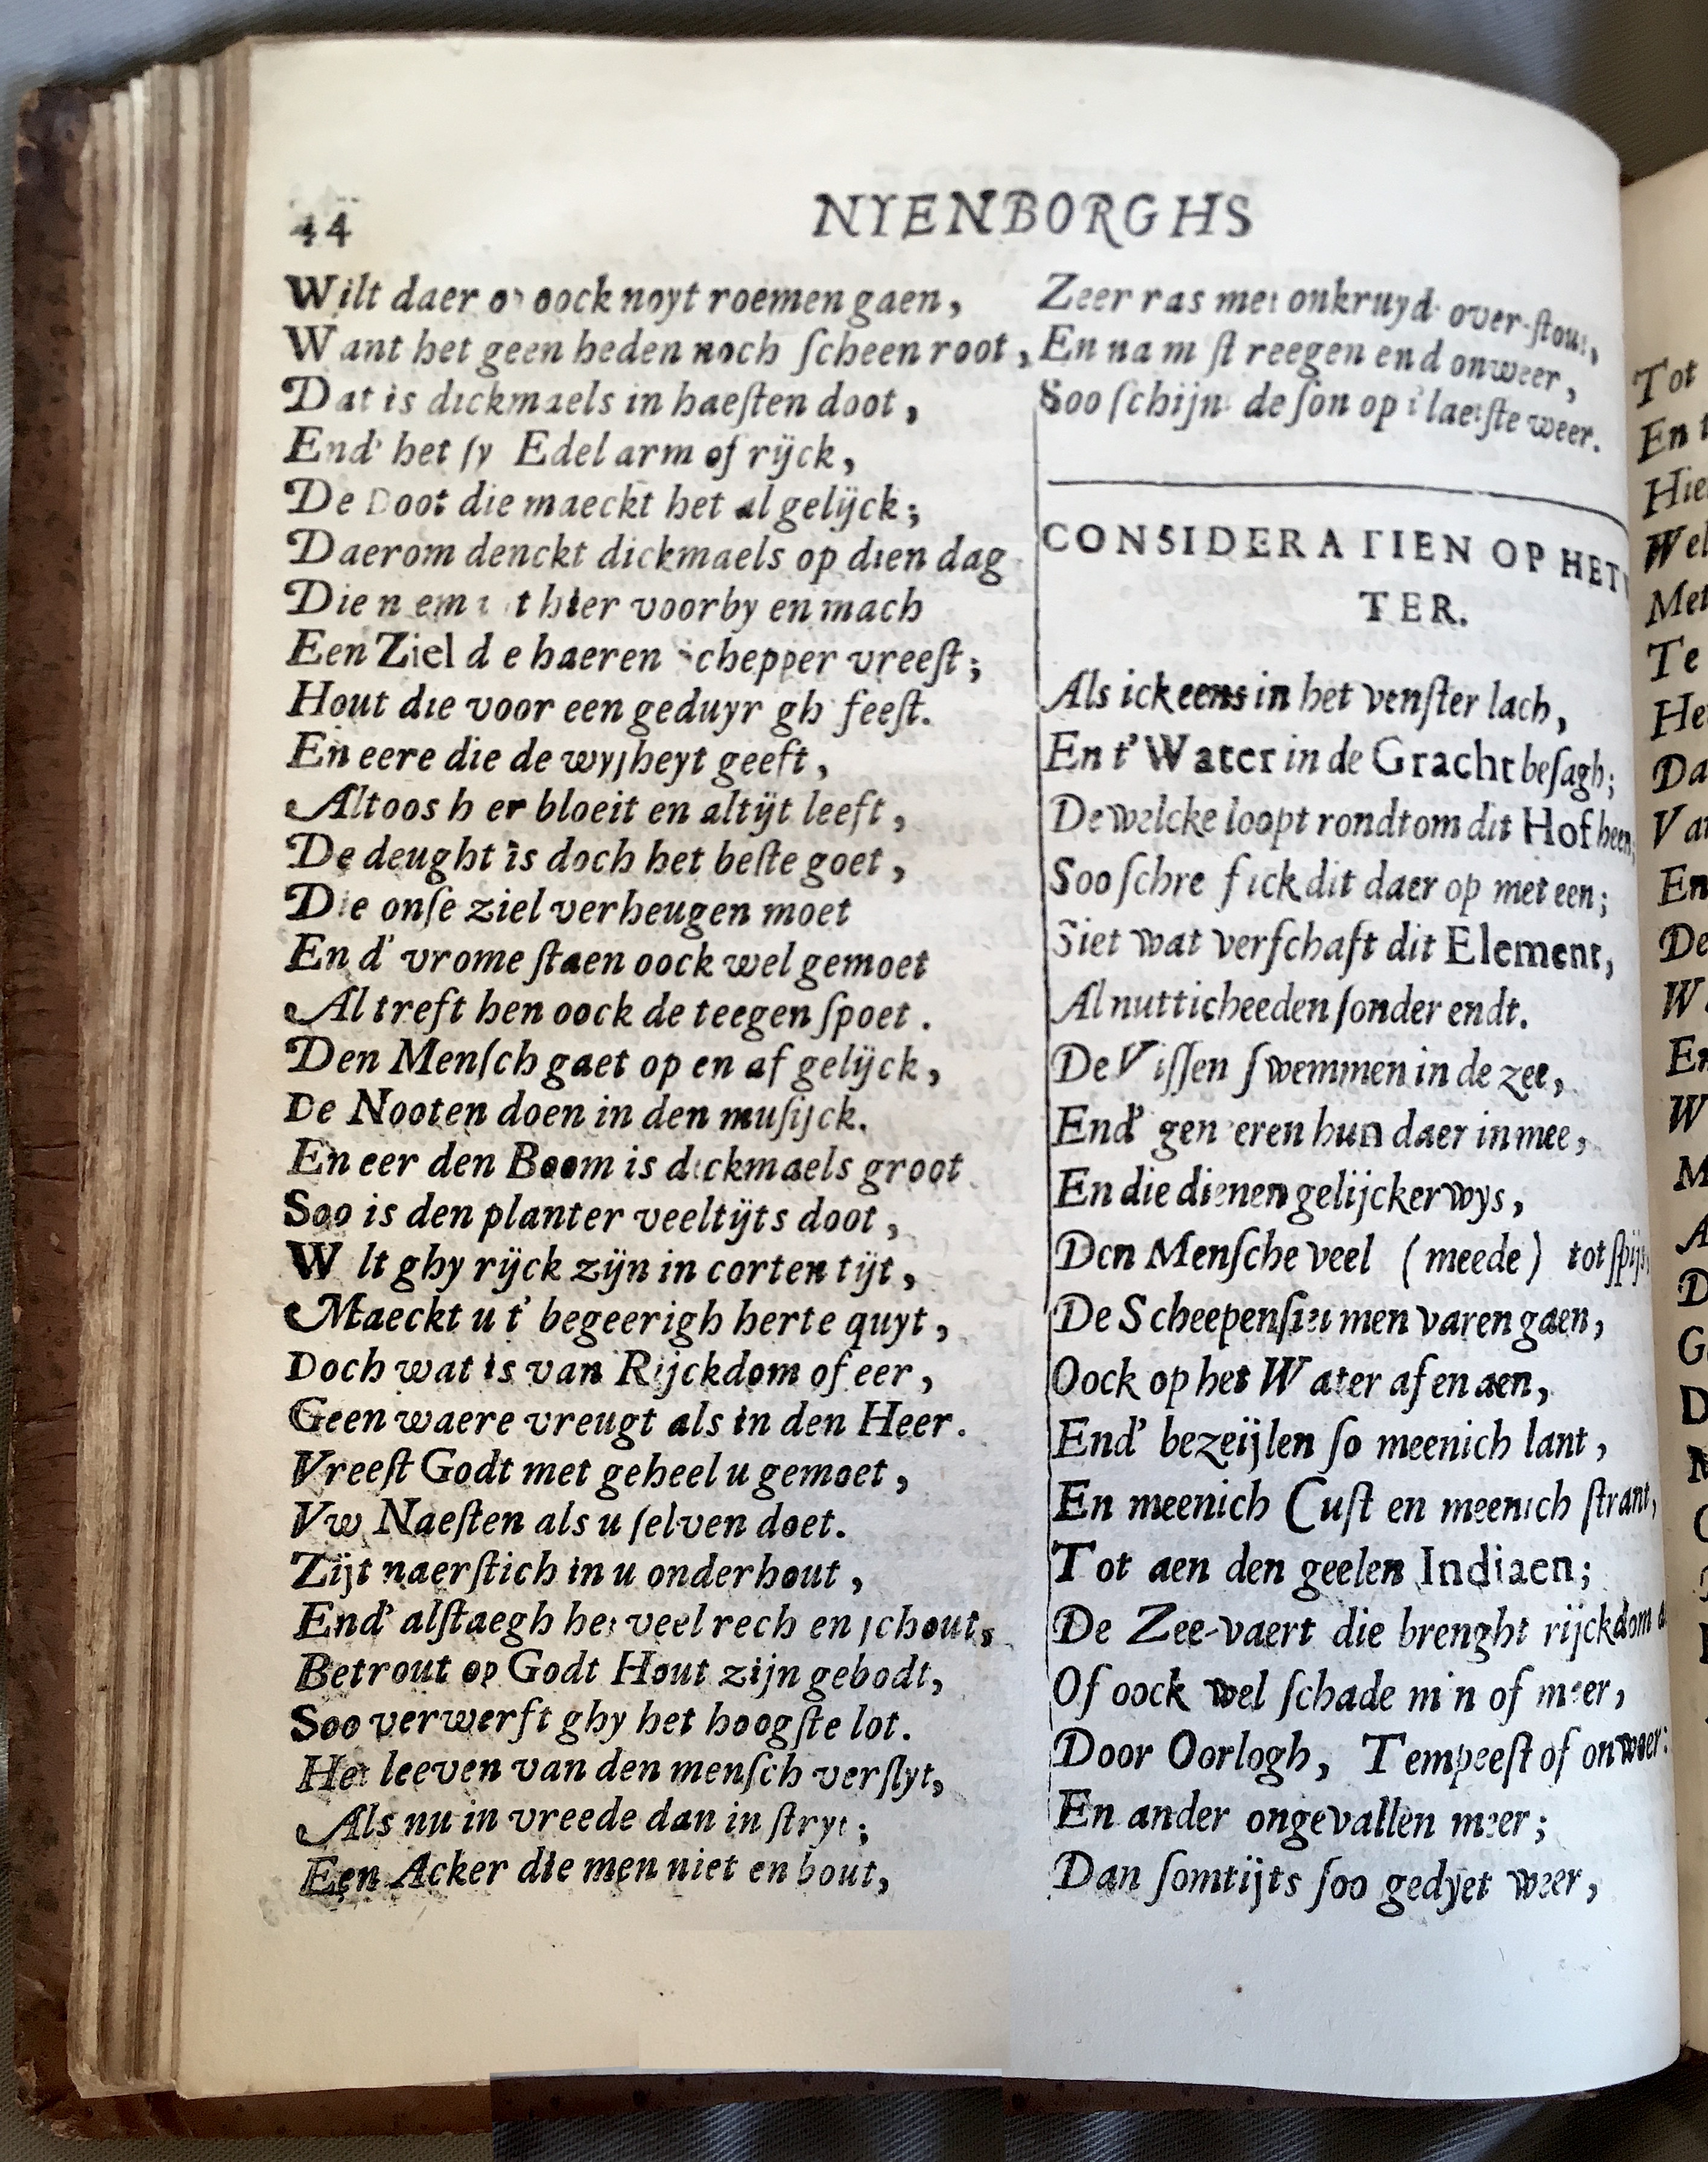 44
NYENBORGHS
Wilt daer op oock noyt roemen gaen,
Want het geen heden noch ſcheen root,
Dat is dickmaels in haeſten doot,
End' het ſy Edel arm of rijck,
De Doot die maeckt het al gelijck;
Daerom denckt dickmaels op dien dag
Die hier voorby en mach
Een Ziel de haeren Schepper vreeſt;
Hout die voor een geduyrigh feeſt.
En eere die de wyſheyt geeft,
Altoos hier bloeit en altijt leeft,
De deught is doch het beſte goet,
Die onſe ziel verheugen moet
En d' vrome ſtaen oock wel gemoet
Al treft hen oock de teegen ſpoet.
Den Menſch gaet op en af gelijck,
De Nooten doen in den muſijck.
En eer den Boom is dickmaels groot
Soo is den planter veeltijts doot,
Wilt ghy rijck zijn in corten tijt,
Maeckt u t' begeerigh herte quyt,
Doch wat is van Rijckdom of eer,
Geen waere vreugt als in den Heer.
Vreeſt Godt met geheel u gemoet,
Vw Naeſten als u ſelven doet.
Zijt naerſtich in u onderhout,
End' alſtaegh het veel rech en ſchout,
Betrout op Godt Hout zijn gebodt,
Soo verwerft ghy het hoogſte lot.
Het leeven van den menſch verſlyt,
Als nu in vreede dan in ſtryt;
Een Acker die men niet en bout,
Zeer ras met onkruyd over-ſtout,
En na m ſt reegen end onweer,
Soo ſchijnt de ſon op t' laetſte weer.
CONSIDERATIEN OP HET
TER.
Als ick eens in het venſter lach,
En t' Water in de Gracht beſagh;
De welcke loopt rondtom dit Hof heen,
Soo ſchreef ick dit daer op met een;
Siet wat verſchaft dit Element,
Al nutticheeden ſonder endt.
De Viſſen ſwemmen in de zee,
End' geneeren hun daer in mee,
En die dienen gelijckerwys,
Den Menſche veel (meede) tot ſpijs,
De Scheepen ſiet men varen gaen,
Oock op het Water af en aen,
End' bezeijlen ſo meenich lant,
En meenich Cuſt en meenich ſtrant,
Tot aen den geelen Indiaen;
De Zee-vaert die brenght rijckdom
Of oock wel ſchade min of meer,
Door Oorlogh, Tempeeſt of onweer:
En ander ongevallen meer;
Dan ſomtijts ſoo gedyet weer,
Tot
En
Hie
Wel
Met
Te
He
Da
Van
En
De
W
En
W
M
A
D
G
D